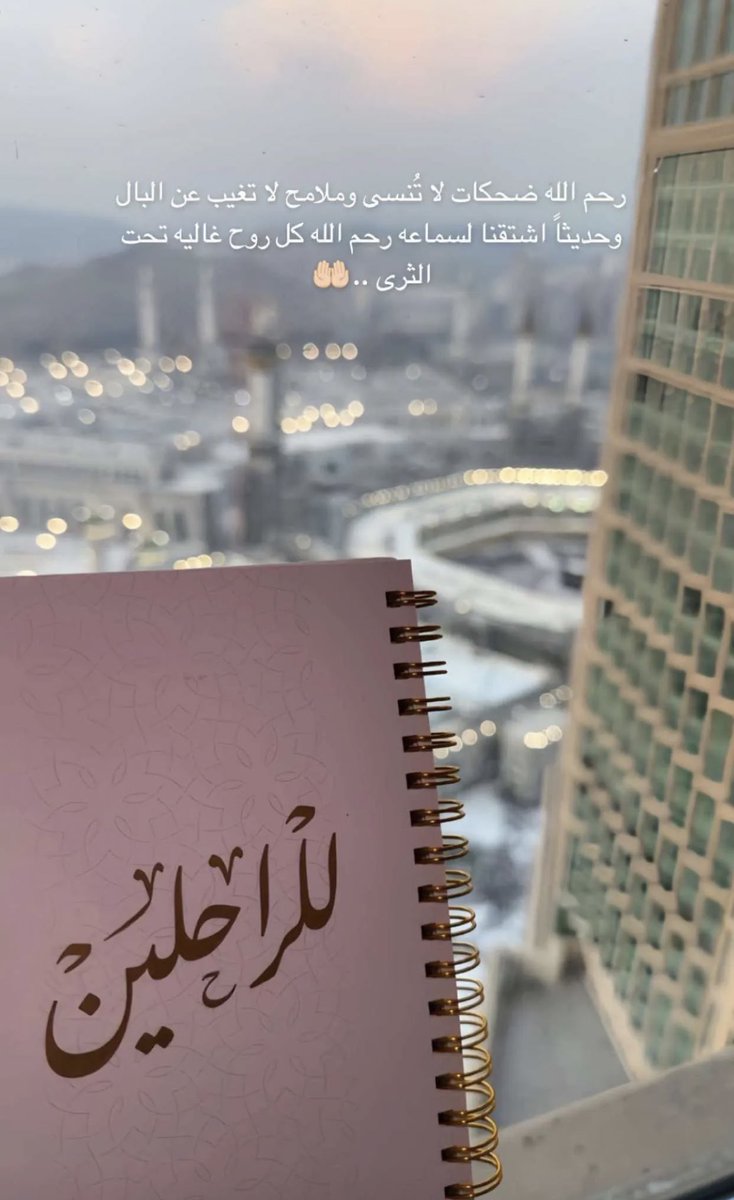 رحم الله ضحكات لا تُنسى وملامح لا تغيب عن البال
وحديثاً اشتقنا لسماعه رحم الله كل روح غاليه تحت
الثرى .. 🤲🏻
للراحلين